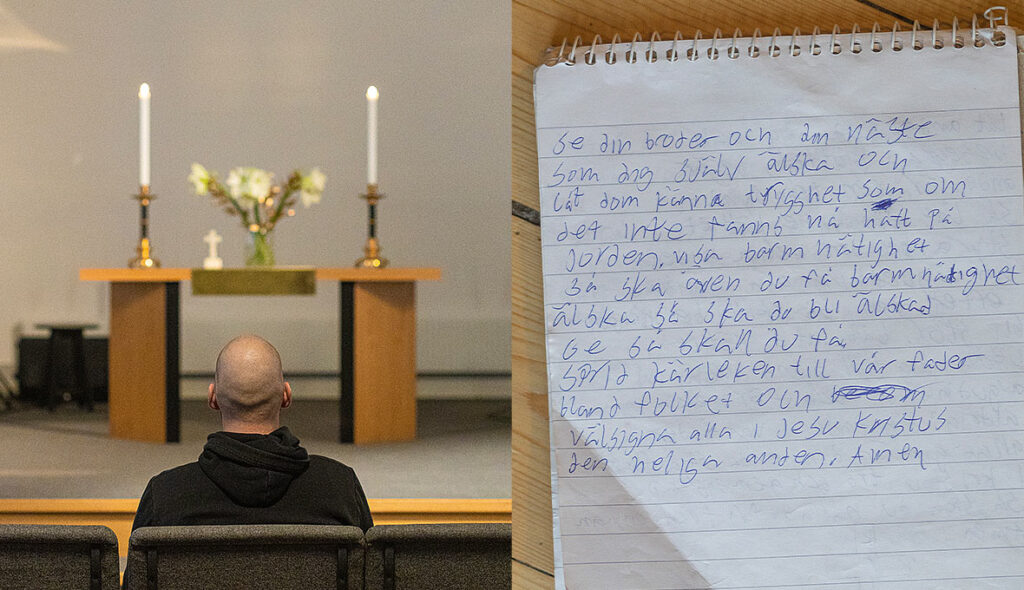 Se din broder och din näste
som dig själv älska och
låt dom känna trygghet som om
det inte fanns nå hatt på
jorden. visa barmhätighet
så ska även du få barmhätighet
älska så ska du bli älskad
Ge så skall du få,
Sprid kärleken till vår fader
bland folket och
välsigna alla i Jesu Kristus
den heliga anden. Amen